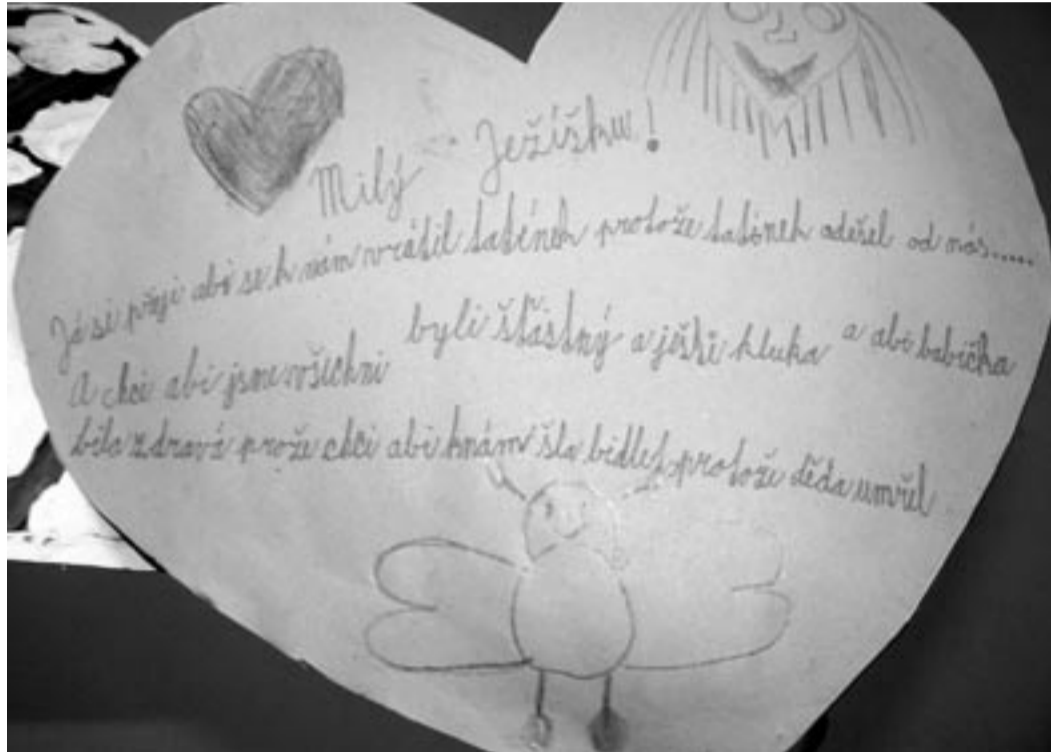 Milý Ježíšku!
Já si přeji abi se k nám vrátil tatínek protože tatínek odešel od nás.....
A chci abi jsme všichni byli šťastný a ještě kluka a abi babička
bila zdravá prože chci abi knám šla bidlet protože děda umřel